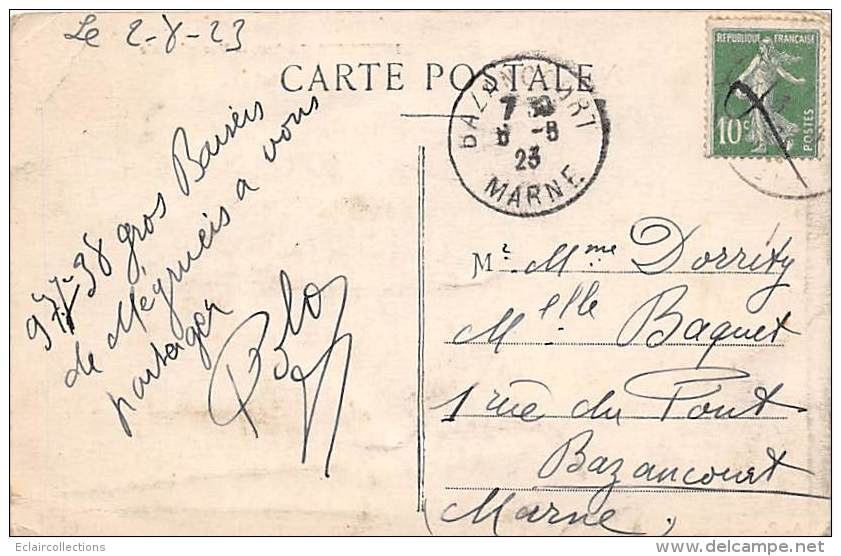 Le 2-8-23
CARTE POSTALE
BAZANCOURT
7 30
6 -8
23
MARNE
REPUBLIQUE FRANCAISE
10c
POSTES
gros Baisers
de Mégrucis a vous
partager
Polo
Mr Mme Dorrity
Melle Baquet
1 rue du Pont
Bazancourt
(Marne)
Eclaircollections
www.delcampe.net